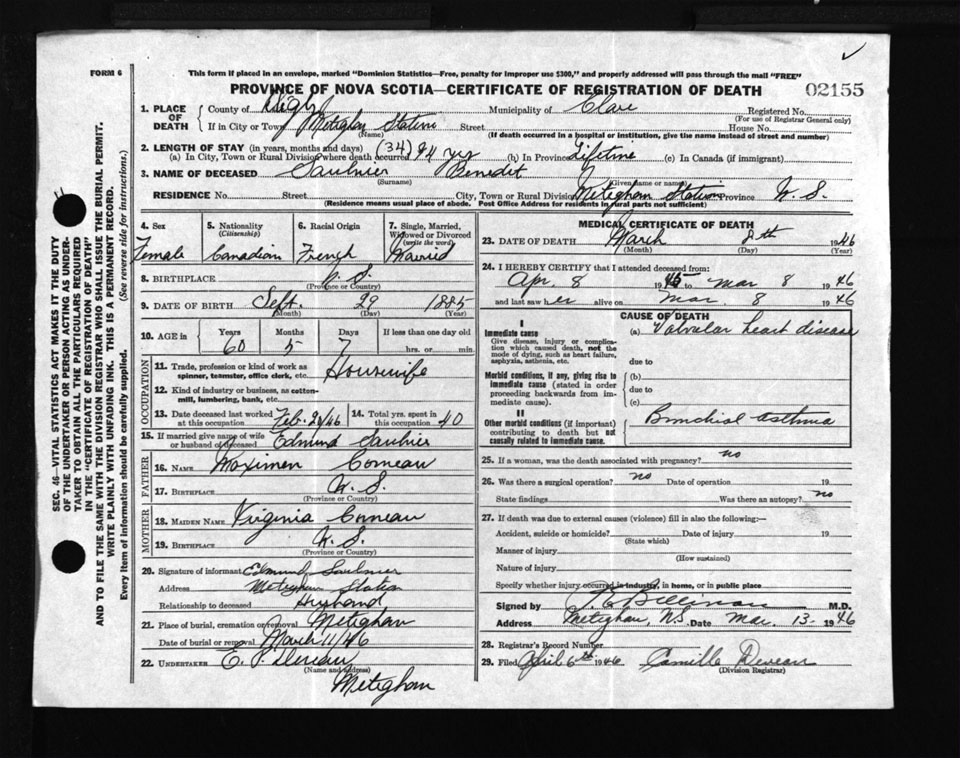 FORM 6
This form if placed in an envelope, marked "Dominion Statistics—Free, penalty for improper use $300," and properly addressed will pass through the mail "FREE"
PROVINCE OF NOVA SCOTIA—CERTIFICATE OF REGISTRATION OF DEATH 02155
1. PLACE OF DEATH County of Digby Municipality of Clare Registered No.
(For use of Registrar General only)
If in City or Town Meteghan Station Street House No.
(Name) (If death occurred in a hospital or institution, give the name instead of street and number)
2. LENGTH OF STAY (in years, months and days)
(a) In City, Town or Rural Division where death occurred (34) yrs (b) In Province Lifetime (c) In Canada (if immigrant)
3. NAME OF DECEASED Saulnier Benedit
(Surname) (Given name or names)
RESIDENCE No. Street City, Town or Rural Division Meteghan Station Province N. S.
(Residence means usual place of abode. Post Office Address for residents in rural parts not sufficient)
4. Sex Female
5. Nationality (Citizenship) Canadian
6. Racial Origin French
7. Single, Married, Widowed or Divorced (write the word) Married
8. BIRTHPLACE N. S.
(Province or Country)
9. DATE OF BIRTH Sept. 29 1885
(Month) (Day) (Year)
10. AGE in Years Months Days If less than one day old
60 5 7 hrs. or min.
OCCUPATION
11. Trade, profession or kind of work as spinner, teamster, office clerk, etc. Housewife
12. Kind of industry or business, as cotton-mill, lumbering, bank, etc.
13. Date deceased last worked at this occupation Feb. 46
14. Total yrs. spent in this occupation 40
15. If married give name of wife or husband of deceased Edmund Saulnier
FATHER
16. NAME Maximen Comeau
17. BIRTHPLACE N. S.
(Province or Country)
MOTHER
18. MAIDEN NAME Virginia Comeau
19. BIRTHPLACE N. S.
(Province or Country)
20. Signature of informant Edmund Saulnier
Address Meteghan Station
Relationship to deceased Husband
21. Place of burial, cremation or removal Meteghan
Date of burial or removal March 11/46
22. UNDERTAKER E.
(Name and Address)
Meteghan
MEDICAL CERTIFICATE OF DEATH
23. DATE OF DEATH March 8th 1946
(Month) (Day) (Year)
24. I HEREBY CERTIFY that I attended deceased from:
Apr. 8 1945 to Mar 8 1946
and last saw her alive on Mar. 8 1946
CAUSE OF DEATH
I
Immediate cause (a) Valvular heart disease
Give disease, injury or complication which caused death, not the mode of dying, such as heart failure, asphyxia, asthenia, etc.
due to
Morbid conditions, if any, giving rise to immediate cause (stated in order proceeding backwards from immediate cause).
(b)
due to
(c)
II
Other morbid conditions (if important) contributing to death but not causally related to immediate cause. Bronchial asthma
25. If a woman, was the death associated with pregnancy? no
26. Was there a surgical operation? no Date of operation 19
State findings Was there an autopsy? no
27. If death was due to external causes (violence) fill in also the following:—
Accident, suicide or homicide? Date of injury 19
(State which)
Manner of injury
(How sustained)
Nature of injury
Specify whether injury occurred in industry, in home, or in public place
Signed by M.D.
Address Meteghan, N.S. Date Mar. 13 1946
28. Registrar's Record Number
29. Filed April 6th 1946 Camille Deveau
(Division Registrar)
SEC. 46—VITAL STATISTICS ACT MAKES IT THE DUTY
OF THE UNDERTAKER OR PERSON ACTING AS UNDER-
TAKER TO OBTAIN ALL THE PARTICULARS REQUIRED
IN THE "CERTIFICATE OF REGISTRATION OF DEATH"
AND TO FILE THE SAME WITH THE DIVISION REGISTRAR WHO SHALL ISSUE THE BURIAL PERMIT.
WRITE PLAINLY WITH UNFADING INK. THIS IS A PERMANENT RECORD.
Every item of information should be carefully supplied. (See reverse side for instructions.)